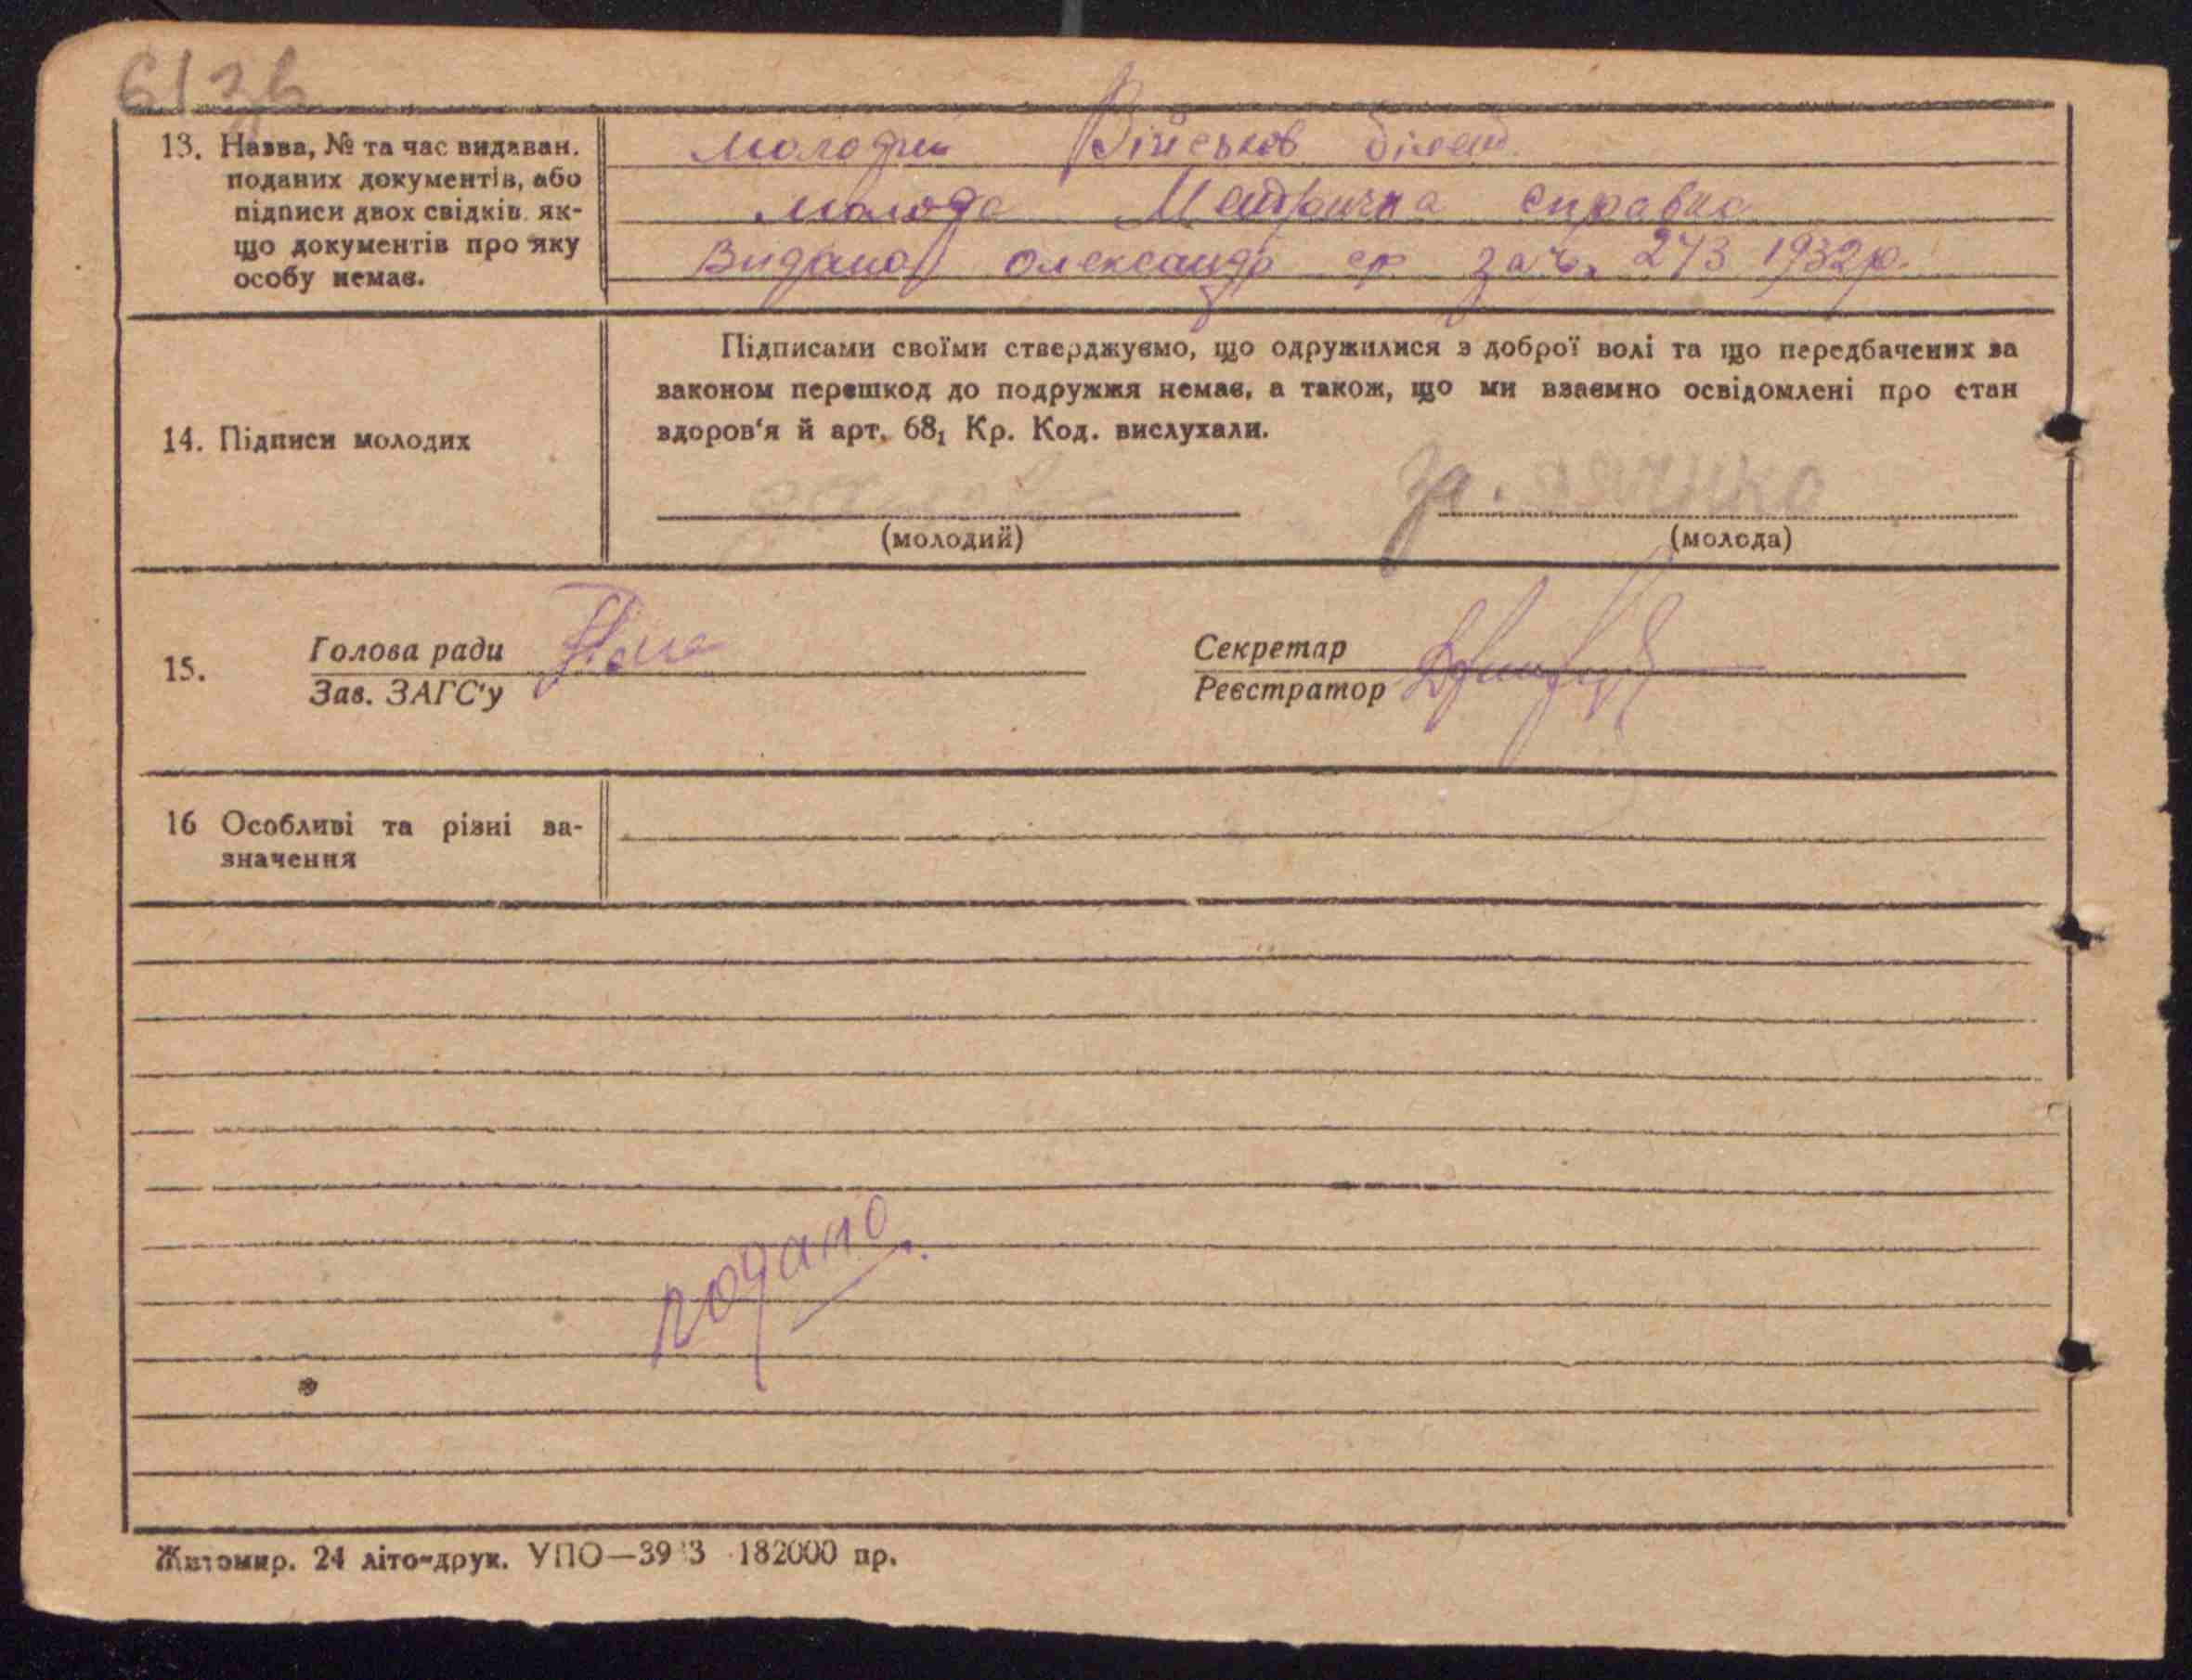 13. Назва, № та час видаван. поданих документів, або підписи двох свідків, як-що документів про яку особу немає.
Молодий Військов білет
Молода Метрична справка
Видана Олександр ср за ч. 273 1932 р.
Підписами своїми стверджуємо, що одружилися з доброї волі та що передбачених за
законом перешкод до подружжя немає, а також, що ми взаємно освідомлені про стан
здоров'я й арт. 68₁ Кр. Код. вислухали.
14. Підписи молодих
за.
(молодий) (молода)
15.
Голова ради
Зав. ЗАГС'у
Секретар
Реєстратор
16 Особливі та різні за-
значення
подано.
Житомир. 24 літо-друк. УПО—39 3 182000 пр.